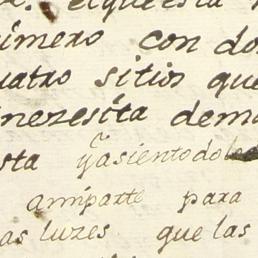 el que esta
imero con do
uatro sitios que
inenesita dem
sta y asiento do
amiparte para
as luzes que las